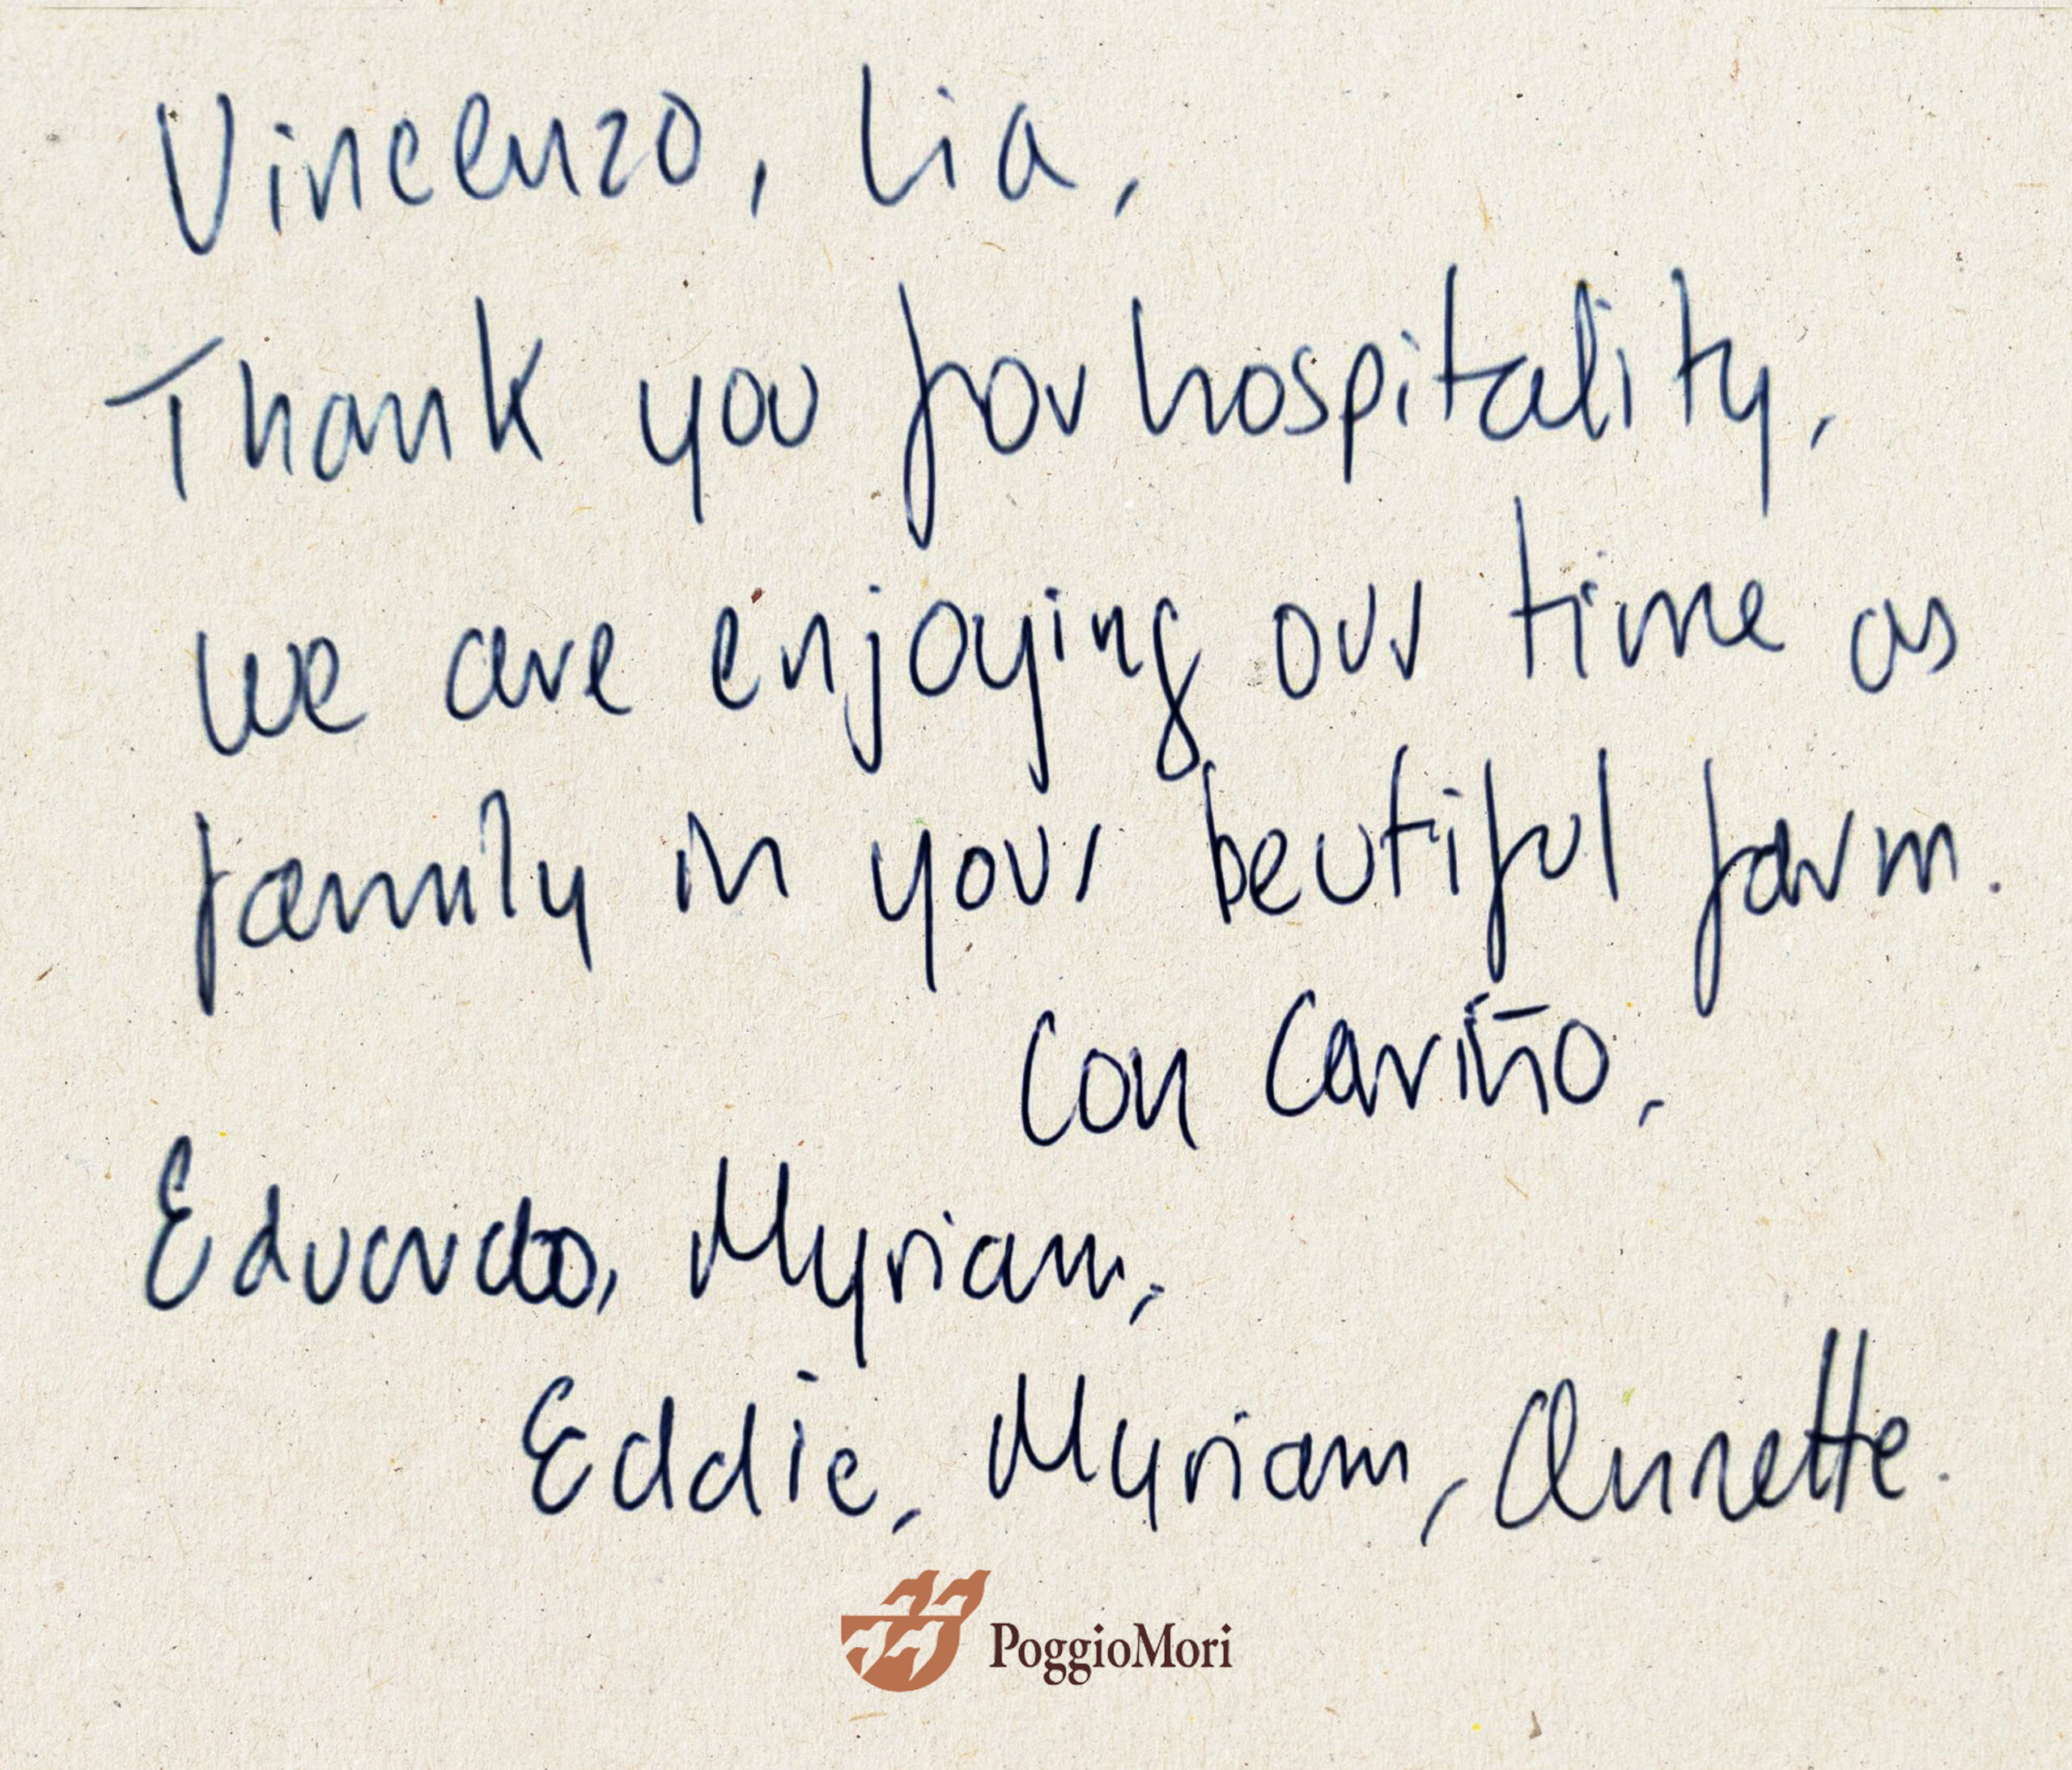 Vincenzo, Lia,
Thank you for hospitality,
we are enjoying our time as
family in your beutiful farm.
Con Cariño,
Eduardo, Myriam,
Eddie, Myriam, Annette.
PoggioMori